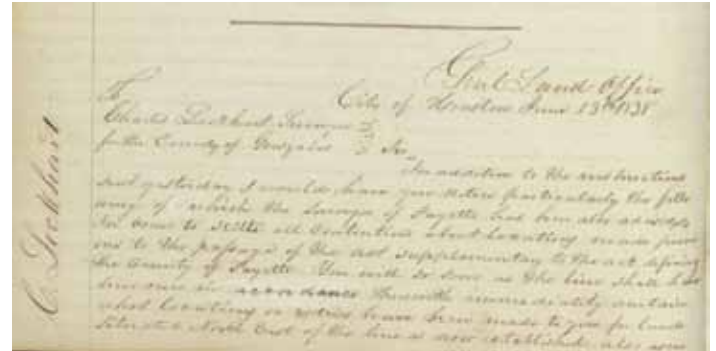 Genl Land Office
City of Houston June 13th 1838
To
Charles Lockhart Surveyor
for the County of Gonzales Sir
In addition to the instructions
sent yesterday I would have you notice particularly the follo
wing of which the Surveyor of Fayette has been also
to settle all contention about locations made previ
ous to the passage of the act supplementary to the act defining
the County of Fayette You will so soon as the line shall have
been run in accordance therewith immediately
what locations or entries have been made to you for lands
situated North East of the line as now established, also
C. Lockhart